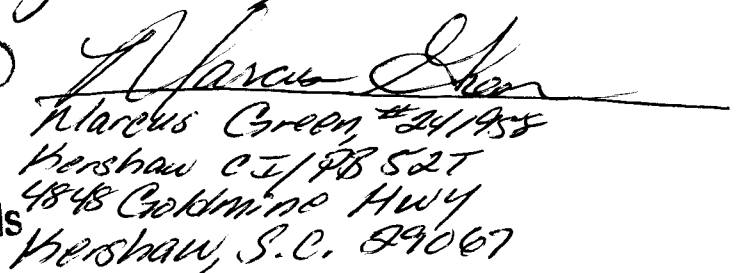 Marcus Green
Marcus Green, #241958
Kershaw CI/PB 52T
4848 Goldmine Hwy
Kershaw, S.C. 29067